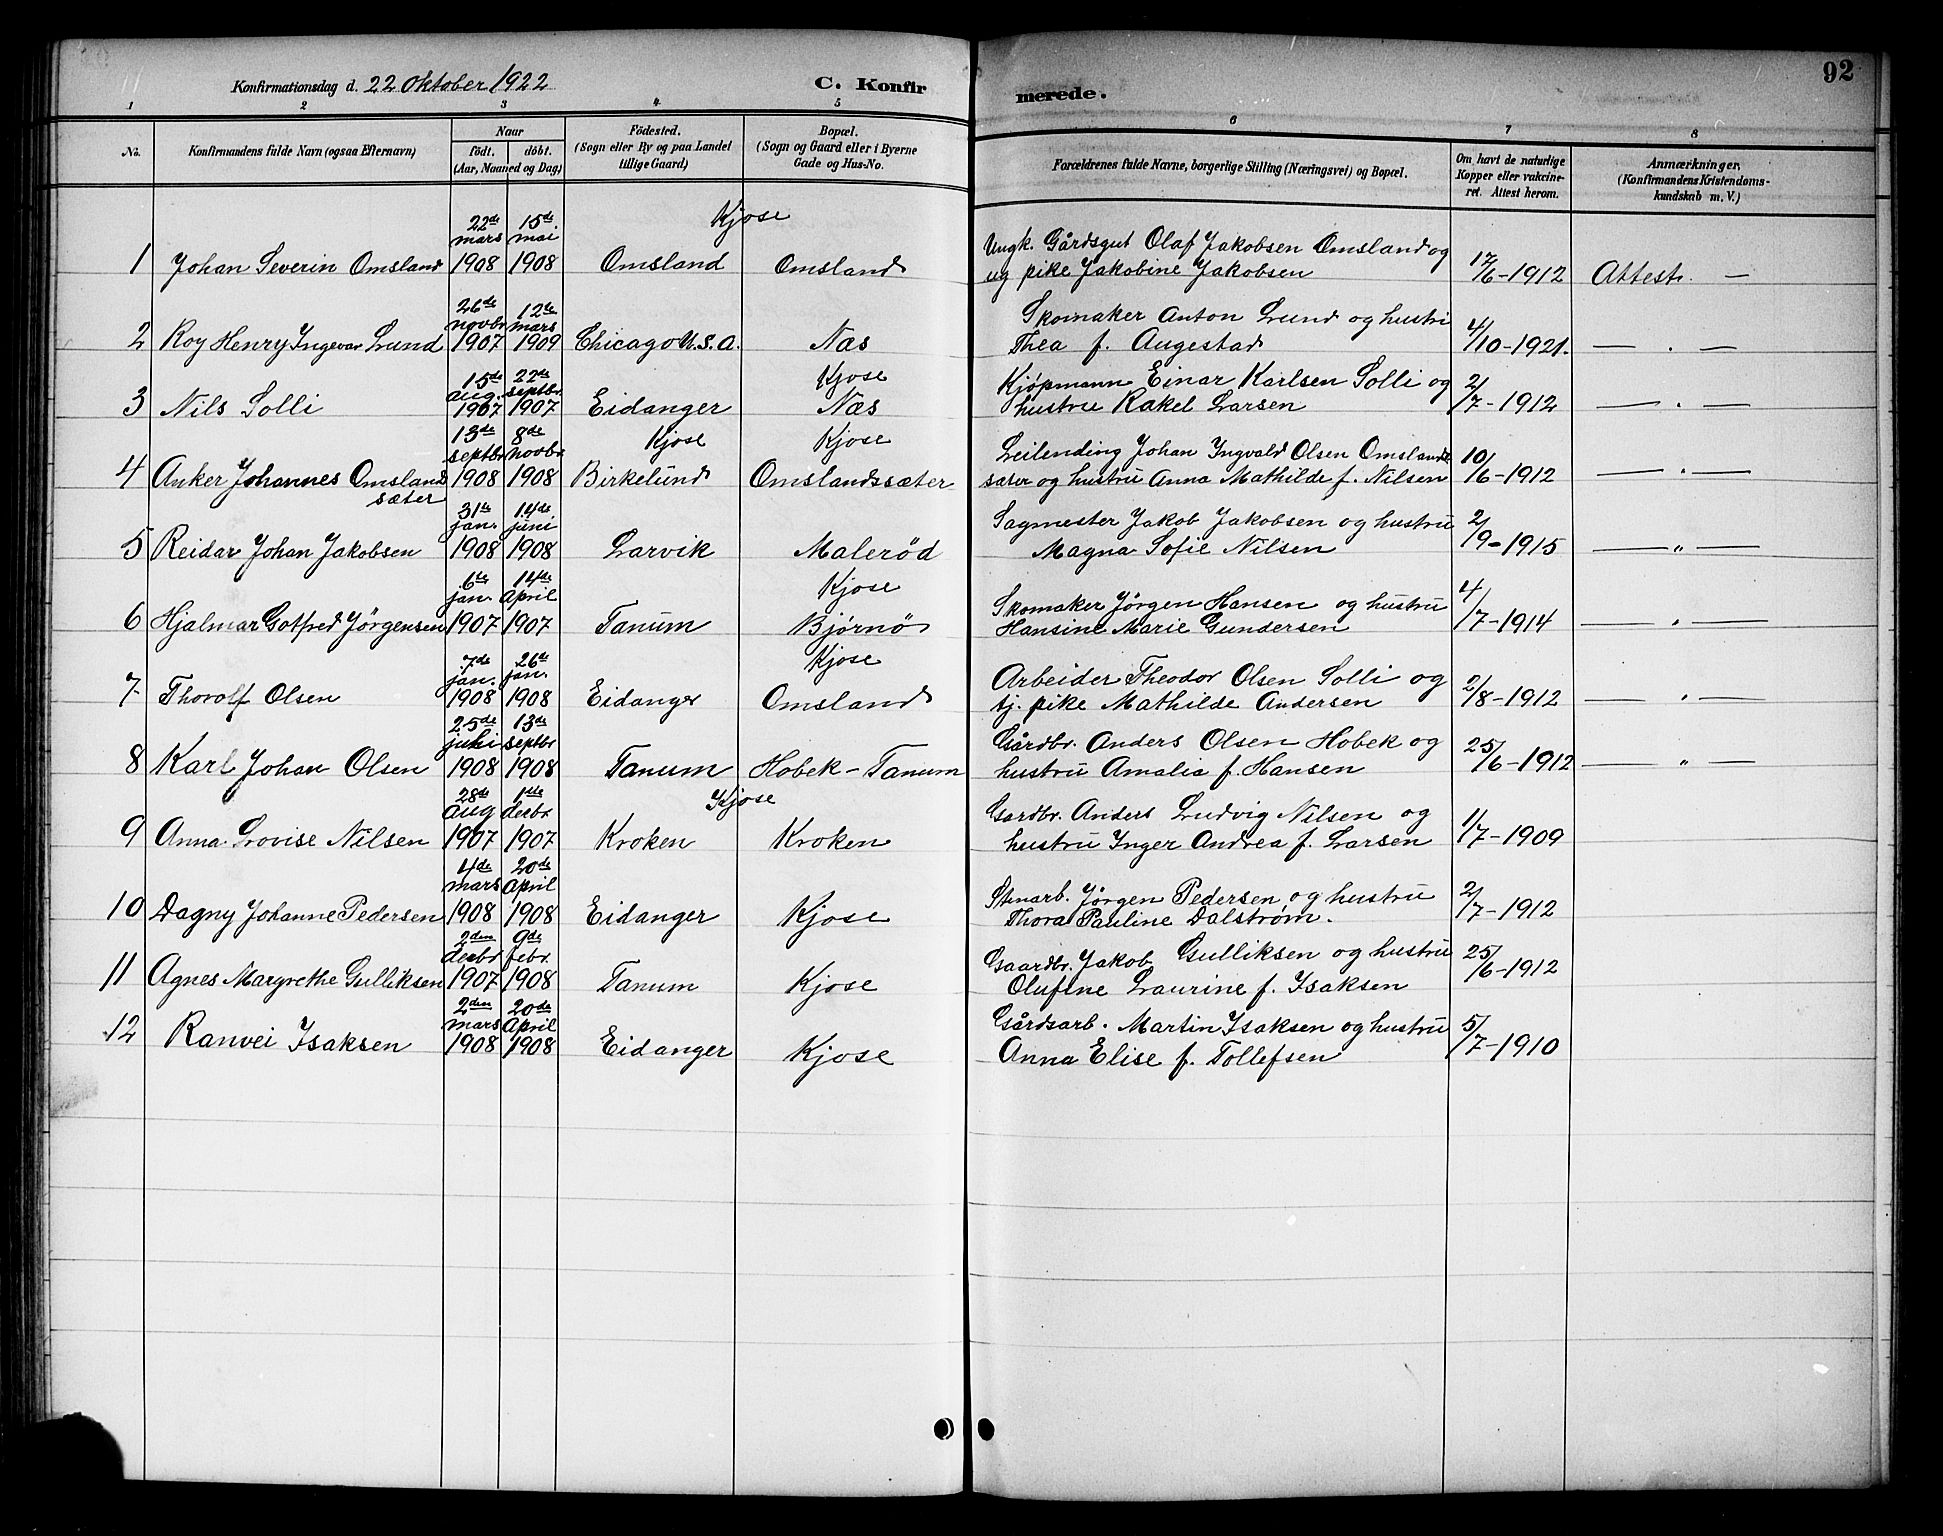 Konfirmationsdag d. 22 Oktober 1922 C. Konfirmerede. 92
1 2 3 4 5 6 7 8
No. Konfirmandens fulde Navn (ogsaa Efternavn) Naar födt. döbt. (Aar, Maaned og Dag) Födested. (Sogn eller By og paa Landet tillige Gaard) Bopæl. (Sogn og Gaard eller i Byerne Gade og Hus-No. Forældrenes fulde Navne, borgerlige Stilling (Næringsvei) og Bopæl. Om havt de naturlige Kopper eller vakcineret. Attest herom. Anmærkninger, (Konfirmandens Kristendomskundskab m. V.)
Kjose
22de mars 15de mai
1 Johan Severin Omsland 1908 1908 Omsland Omsland Ungk. Gårdsgut Olaf Jakobsen Omsland og
ug pike Jakobine Jakobsen 17/6-1912 Attest. —
26de novbr 12te mars
2 Roy Henry Ingevar Lund 1907 1909 Chicago U.S.A. Næs Skomaker Anton Lund og hustru
Thea f. Augestad 4/10-1921. — . —
15de aug. 22de septbr. Kjose
3 Nils Solli 1907 1907 Eidanger Næs Kjøpmann Einar Karlsen Solli og
hustru Rakel Larsen 2/7-1912 — . —
13de septbr 8de novbr. Kjose Kjose
4 Anker Johannes Omsland 1908 1908 Birkelund Omslandssæter Leilending Johan Ingvald Olsen Omslands
sæter sæter og hustru Anna Mathilde f. Nilsen 10/6-1912 — " —
31te jan. 14de juni
5 Reidar Johan Jakobsen 1908 1908 Larvik Malerød Sagmester Jakob Jakobsen og hustru
Magna Sofie Nilsen 2/9-1915 — " —
6te jan. 14de April Kjose
6 Hjalmar Gotfred Jörgensen 1907 1907 Tanum Bjørnø Skomaker Jörgen Hansen og hustru
Hansine Marie Gundersen 4/7-1914 — " —
7de jan. 26de jan. Kjose
7 Thorolf Olsen 1908 1908 Eidanger Omsland Arbeider Theodor Olsen Solli og
tj. pike Mathilde Andersen 2/8-1912 — " —
25de 13de septbr
8 Karl Johan Olsen 1908 1908 Tanum Hobek-Tanum Gårdbr. Anders Olsen Hobek og
hustru Amalia f. Hansen 25/6-1912 — " —
28de aug 1ste desbr Kjose
9 Anna Lovise Nilsen 1907 1907 Kroken Kroken Gardbr. Anders Ludvig Nilsen og
hustru Inger Andrea f. Larsen 1/7-1909
4de mars 20de April
10 Dagny Johanne Pedersen 1908 1908 Eidanger Kjose Stenarb. Jørgen Pedersen og hustru
Thora Pauline Dalstrøm. 2/7-1912
2den desbr 9de febr.
11 Agnes Margrethe Gulliksen 1907 1908 Tanum Kjose Gaardbr. Jakob Gulliksen og hustru
Olufine Laurine f. Isaksen 25/6-1912
2den mars 20de April
12 Ranvei Isaksen 1908 1908 Eidanger Kjose Gårdsarb. Martin Isaksen og hustru
Anna Elise f. Tollefsen 5/7-1910